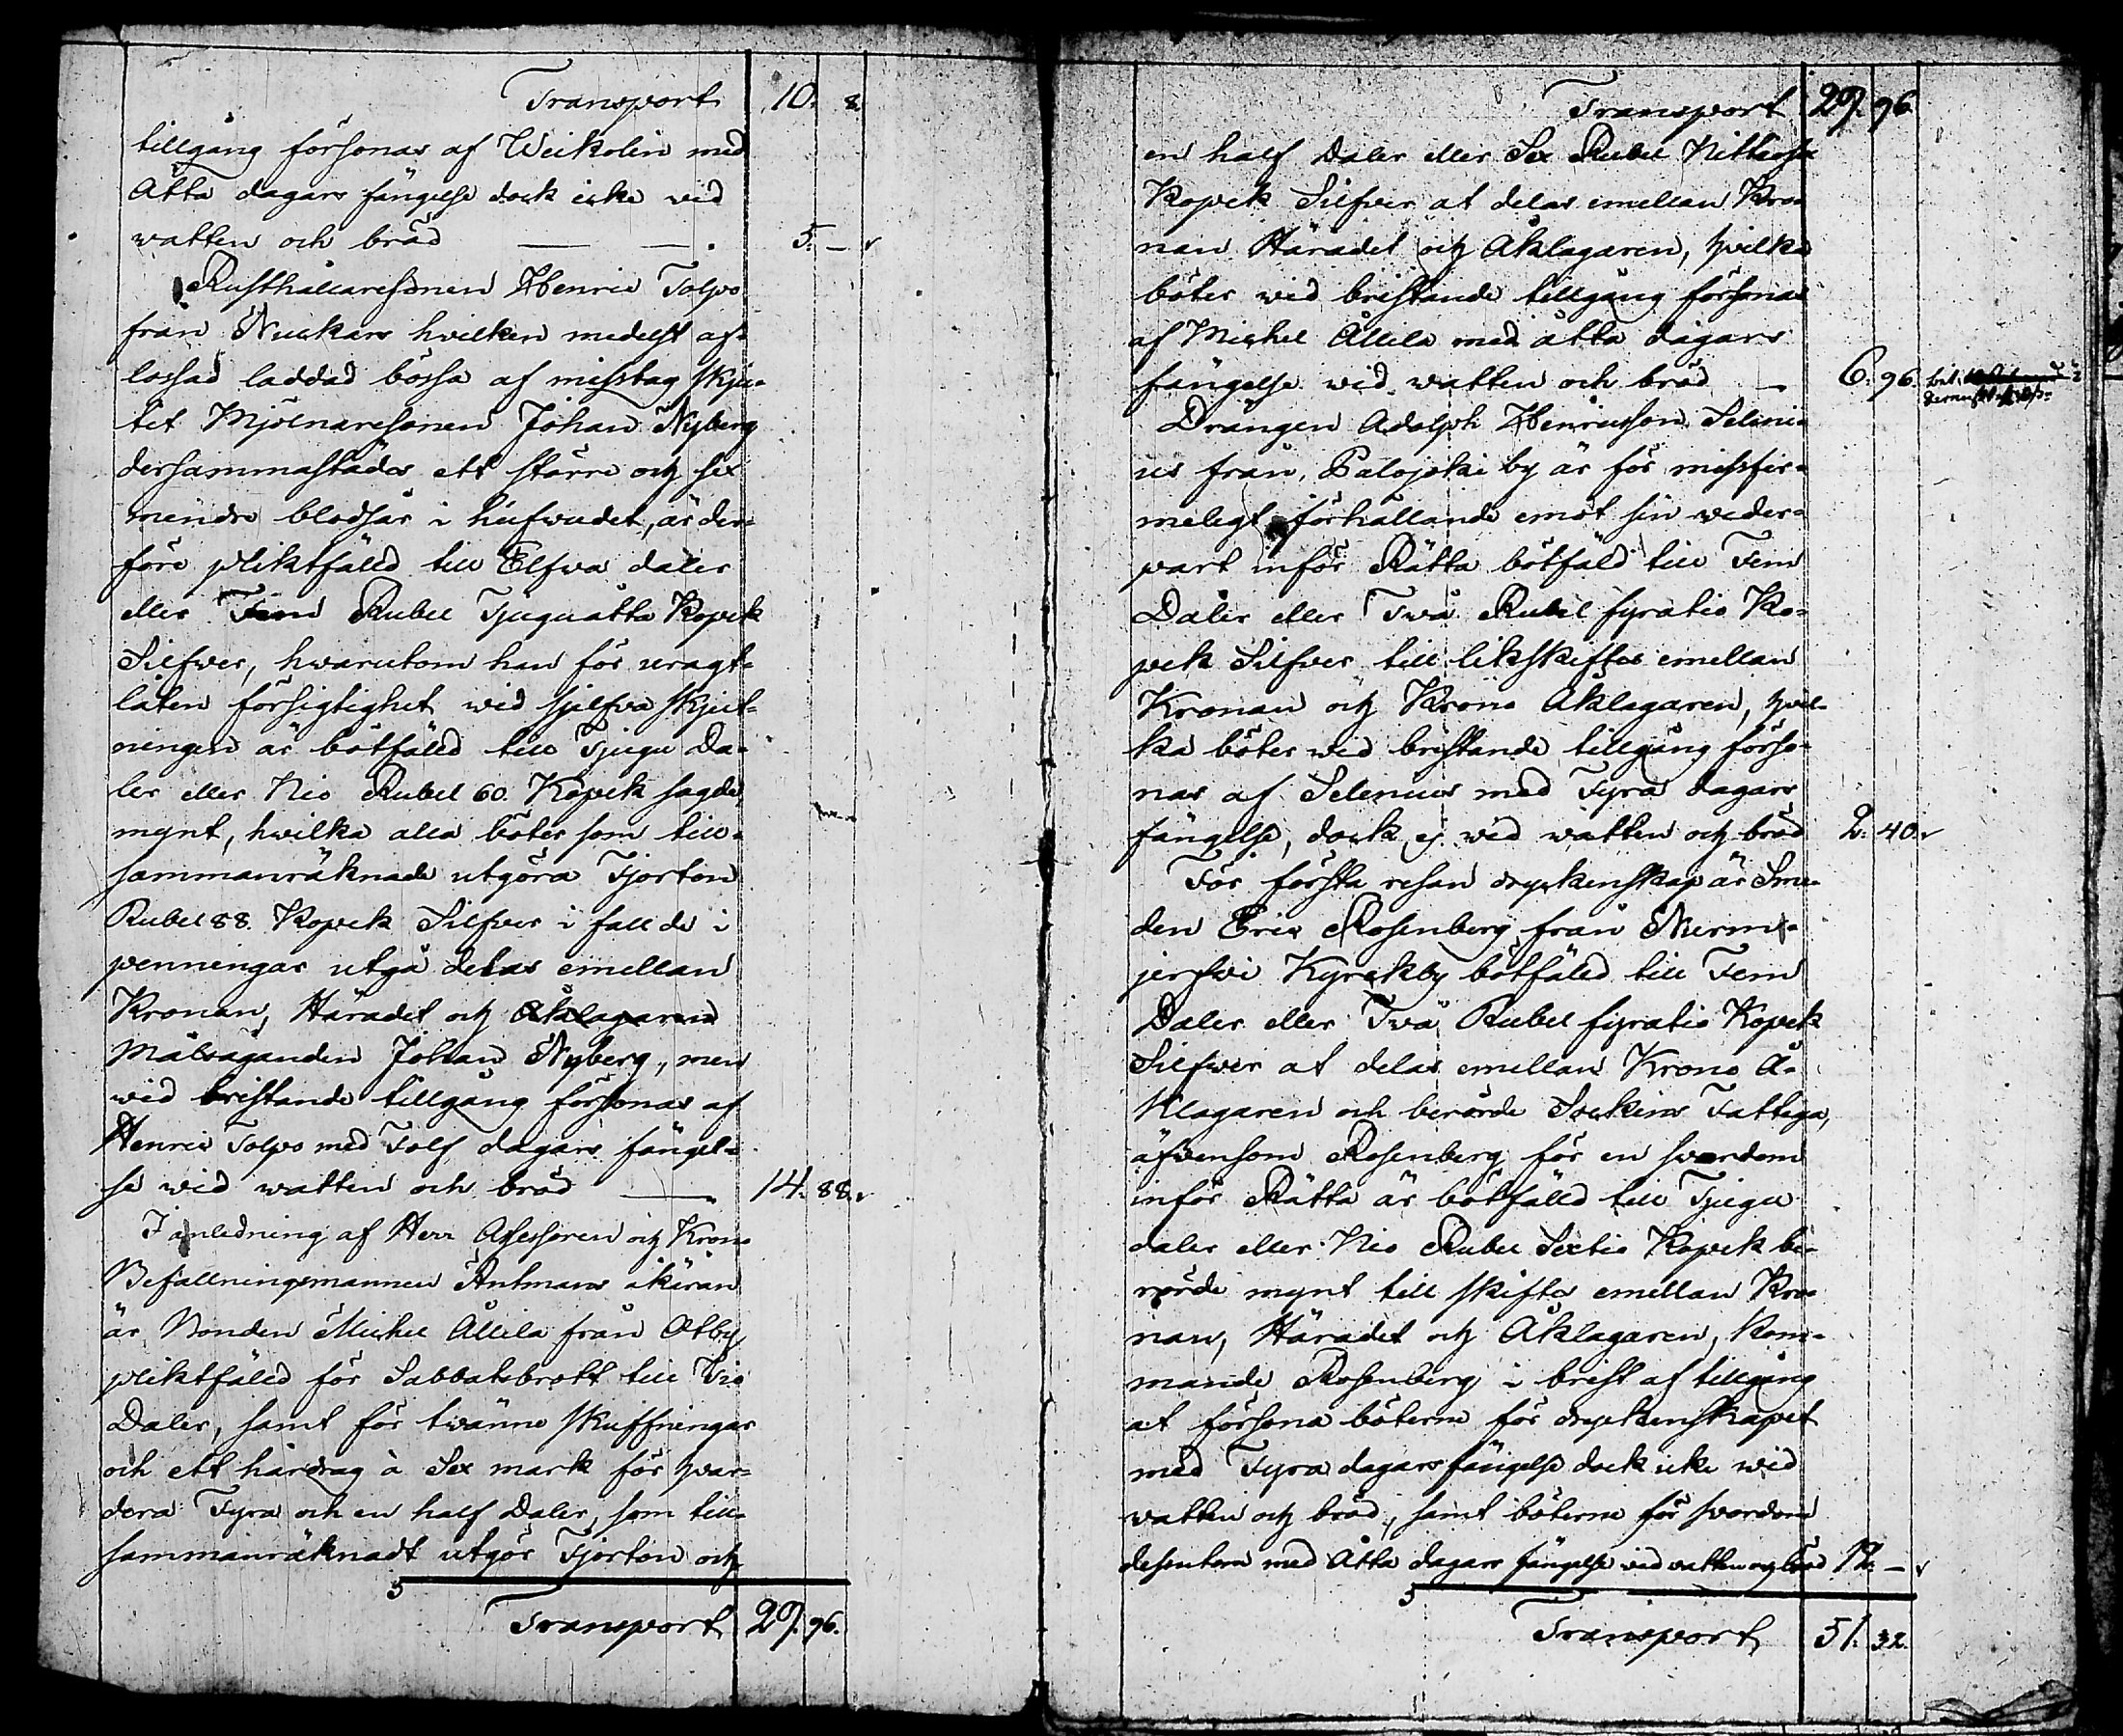 Transport 10. 8.
tillgång försonas af Weikolin med
Åtta dagars fängelse dock icke vid
watten och bröd — — . 5. –
Rusthållaresonen Henric Tolpo
från Nuckars hvilken medelst af-
lossad laddad bössa af misstag skju-
tit Mjölnaresonen Johan Nyberg
dersammastädes ett större och sex
mindre blodsår i hufwudet, är der-
före pliktfälld till Elfva daler
eller Fem Rubel Tjuguåtta Kopek
Silfwer, hvarutom han för uragt-
låten försigtighet wid sjelfva skjut-
ningen är bötfälld till Tjugu Da-
ler eller Nio Rubel 60. Kopek sagde
mynt, hwilka alla böter som till-
sammanräknade utgöra Fjorton
Rubel 88. Kopek Silfver i fall de i
penningar utgå delas emellan
Kronan, Häradet och Åklagaren
Målsäganden Johan Nyberg, men
wid bristande tillgång försonas af
Henric Tolpo med Tolf dagars fängel-
se wid watten och bröd — 14. 88.
I anledning af Herr Assessoren och Krono
Befallningsmannen Äntmans åkäran
är Bonden Michel Allila från Otby
pliktfälld för Sabbatsbrott till Tio
Daler, samt för twänne skuffningar
och ett hårdrag à Sex mark för hvar-
dera Fyra och en half Daler, som till-
sammanräknadt utgör Fjorton och
Transport 29. 96.
Transport 29. 96.
en half Daler eller Sex Rubel Nittiosex
Kopek Silfver at delas emellan Kro-
nan Häradet och Åklagaren, hvilka
böter wid bristande tillgång försonas
af Michel Allila med åtta dagars
fängelse wid watten och bröd – 6. 96.
Drängen Adolph Henricsson Seleni-
us från Palojoki by är för missfir-
meligt förhållande emot sin weder-
part inför Rätta bötfäld till Fem
Daler eller Två Rubel fyratio Ko-
pek Silfver till likskiftes emellan
Kronan och Krono Åklagaren, hvil-
ka böter wid bristande tillgång förso-
nas af Selenius med Fyra dagars
fängelse, dock ej wid watten och bröd 2. 40.
För första resan dryckenskap är Sme-
den Eric Rosenberg från Nurmi-
jerfwi Kyrckby bötfälld till Fem
Daler eller Två Rubel fyratio Kopek
Silfwer at delas emellan Krono Å-
klagaren och berörde Sockens Fattiga,
äfvensom Rosenberg för en svordom
inför Rätta är bötfälld till Tjugu
daler eller Nio Rubel Sextio Kopek be-
rörde mynt till skiftes emellan Kro-
nan, Häradet och Åklagaren, kom-
mande Rosenberg i brist af tillgång
at försona böterne för dryckenskapet
med Fyra dagars fängelse dock icke wid
watten och bröd, samt böterne för svordom
desutom med Åtta dagars fängelse wid watten och bröd 12. –
Transport 51. 32.